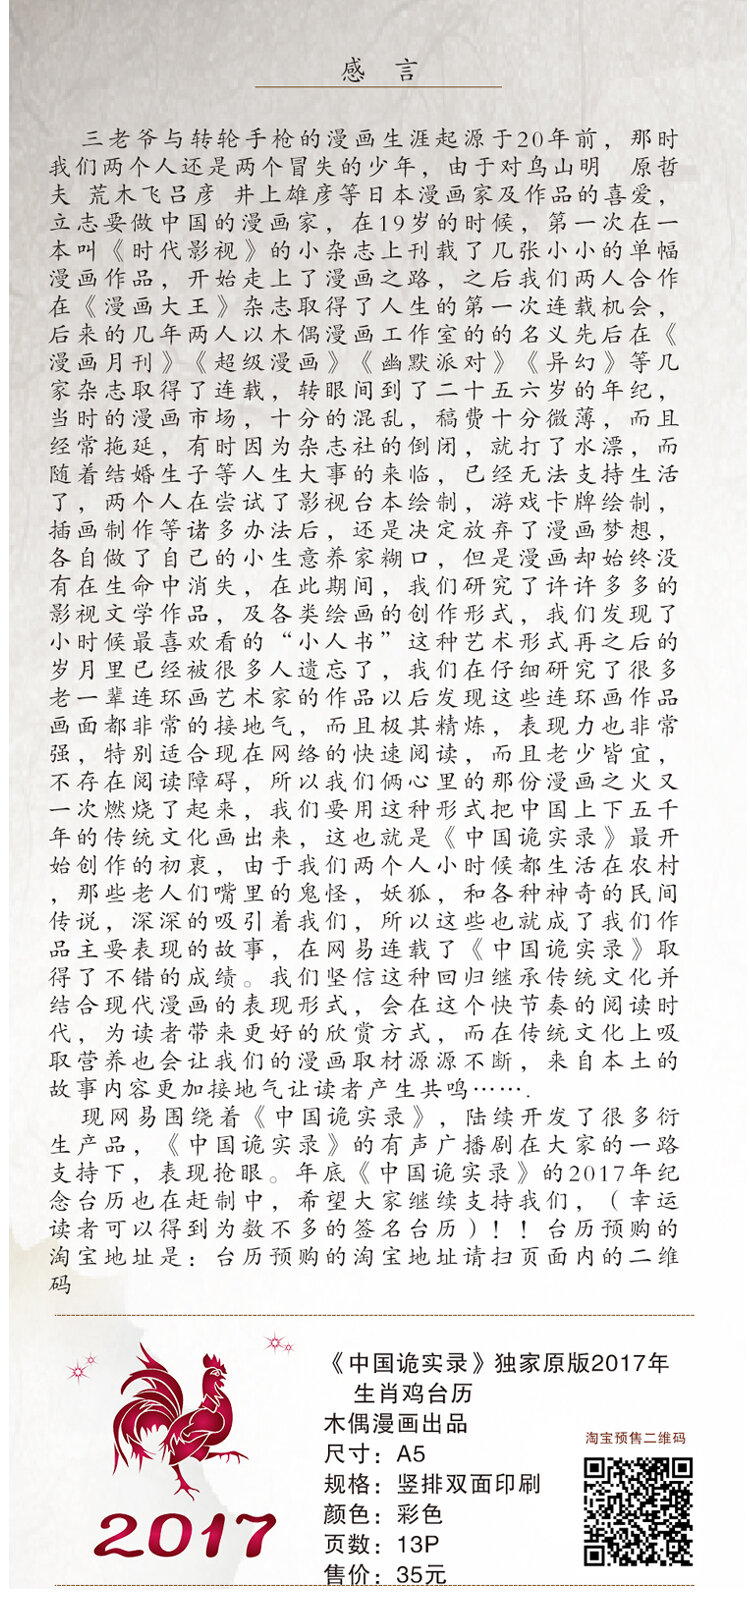 感 言
三老爷与转轮手枪的漫画生涯起源于20年前，那时
我们两个人还是两个冒失的少年，由于对鸟山明 原哲
夫 荒木飞吕彦 井上雄彦等日本漫画家及作品的喜爱，
立志要做中国的漫画家，在19岁的时候，第一次在一
本叫《时代影视》的小杂志上刊载了几张小小的单幅
漫画作品，开始走上了漫画之路，之后我们两人合作
在《漫画大王》杂志取得了人生的第一次连载机会，
后来的几年两人以木偶漫画工作室的的名义先后在《
漫画月刊》《超级漫画》《幽默派对》《异幻》等几
家杂志取得了连载，转眼间到了二十五六岁的年纪，
当时的漫画市场，十分的混乱，稿费十分微薄，而且
经常拖延，有时因为杂志社的倒闭，就打了水漂，而
随着结婚生子等人生大事的来临，已经无法支持生活
了，两个人在尝试了影视台本绘制，游戏卡牌绘制，
插画制作等诸多办法后，还是决定放弃了漫画梦想，
各自做了自己的小生意养家糊口，但是漫画却始终没
有在生命中消失，在此期间，我们研究了许许多多的
影视文学作品，及各类绘画的创作形式，我们发现了
小时候最喜欢看的“小人书”这种艺术形式再之后的
岁月里已经被很多人遗忘了，我们在仔细研究了很多
老一辈连环画艺术家的作品以后发现这些连环画作品
画面都非常的接地气，而且极其精炼，表现力也非常
强，特别适合现在网络的快速阅读，而且老少皆宜，
不存在阅读障碍，所以我们俩心里的那份漫画之火又
一次燃烧了起来，我们要用这种形式把中国上下五千
年的传统文化画出来，这也就是《中国诡实录》最开
始创作的初衷，由于我们两个人小时候都生活在农村
，那些老人们嘴里的鬼怪，妖狐，和各种神奇的民间
传说，深深的吸引着我们，所以这些也就成了我们作
品主要表现的故事，在网易连载了《中国诡实录》取
得了不错的成绩。我们坚信这种回归继承传统文化并
结合现代漫画的表现形式，会在这个快节奏的阅读时
代，为读者带来更好的欣赏方式，而在传统文化上吸
取营养也会让我们的漫画取材源源不断，来自本土的
故事内容更加接地气让读者产生共鸣…….
现网易围绕着《中国诡实录》，陆续开发了很多衍
生产品，《中国诡实录》的有声广播剧在大家的一路
支持下，表现抢眼。年底《中国诡实录》的2017年纪
念台历也在赶制中，希望大家继续支持我们，（幸运
读者可以得到为数不多的签名台历）！！台历预购的
淘宝地址是：台历预购的淘宝地址请扫页面内的二维
码
《中国诡实录》独家原版2017年
生肖鸡台历
木偶漫画出品
尺寸：A5
规格：竖排双面印刷
颜色：彩色
页数：13P
售价：35元
淘宝预售二维码
2017